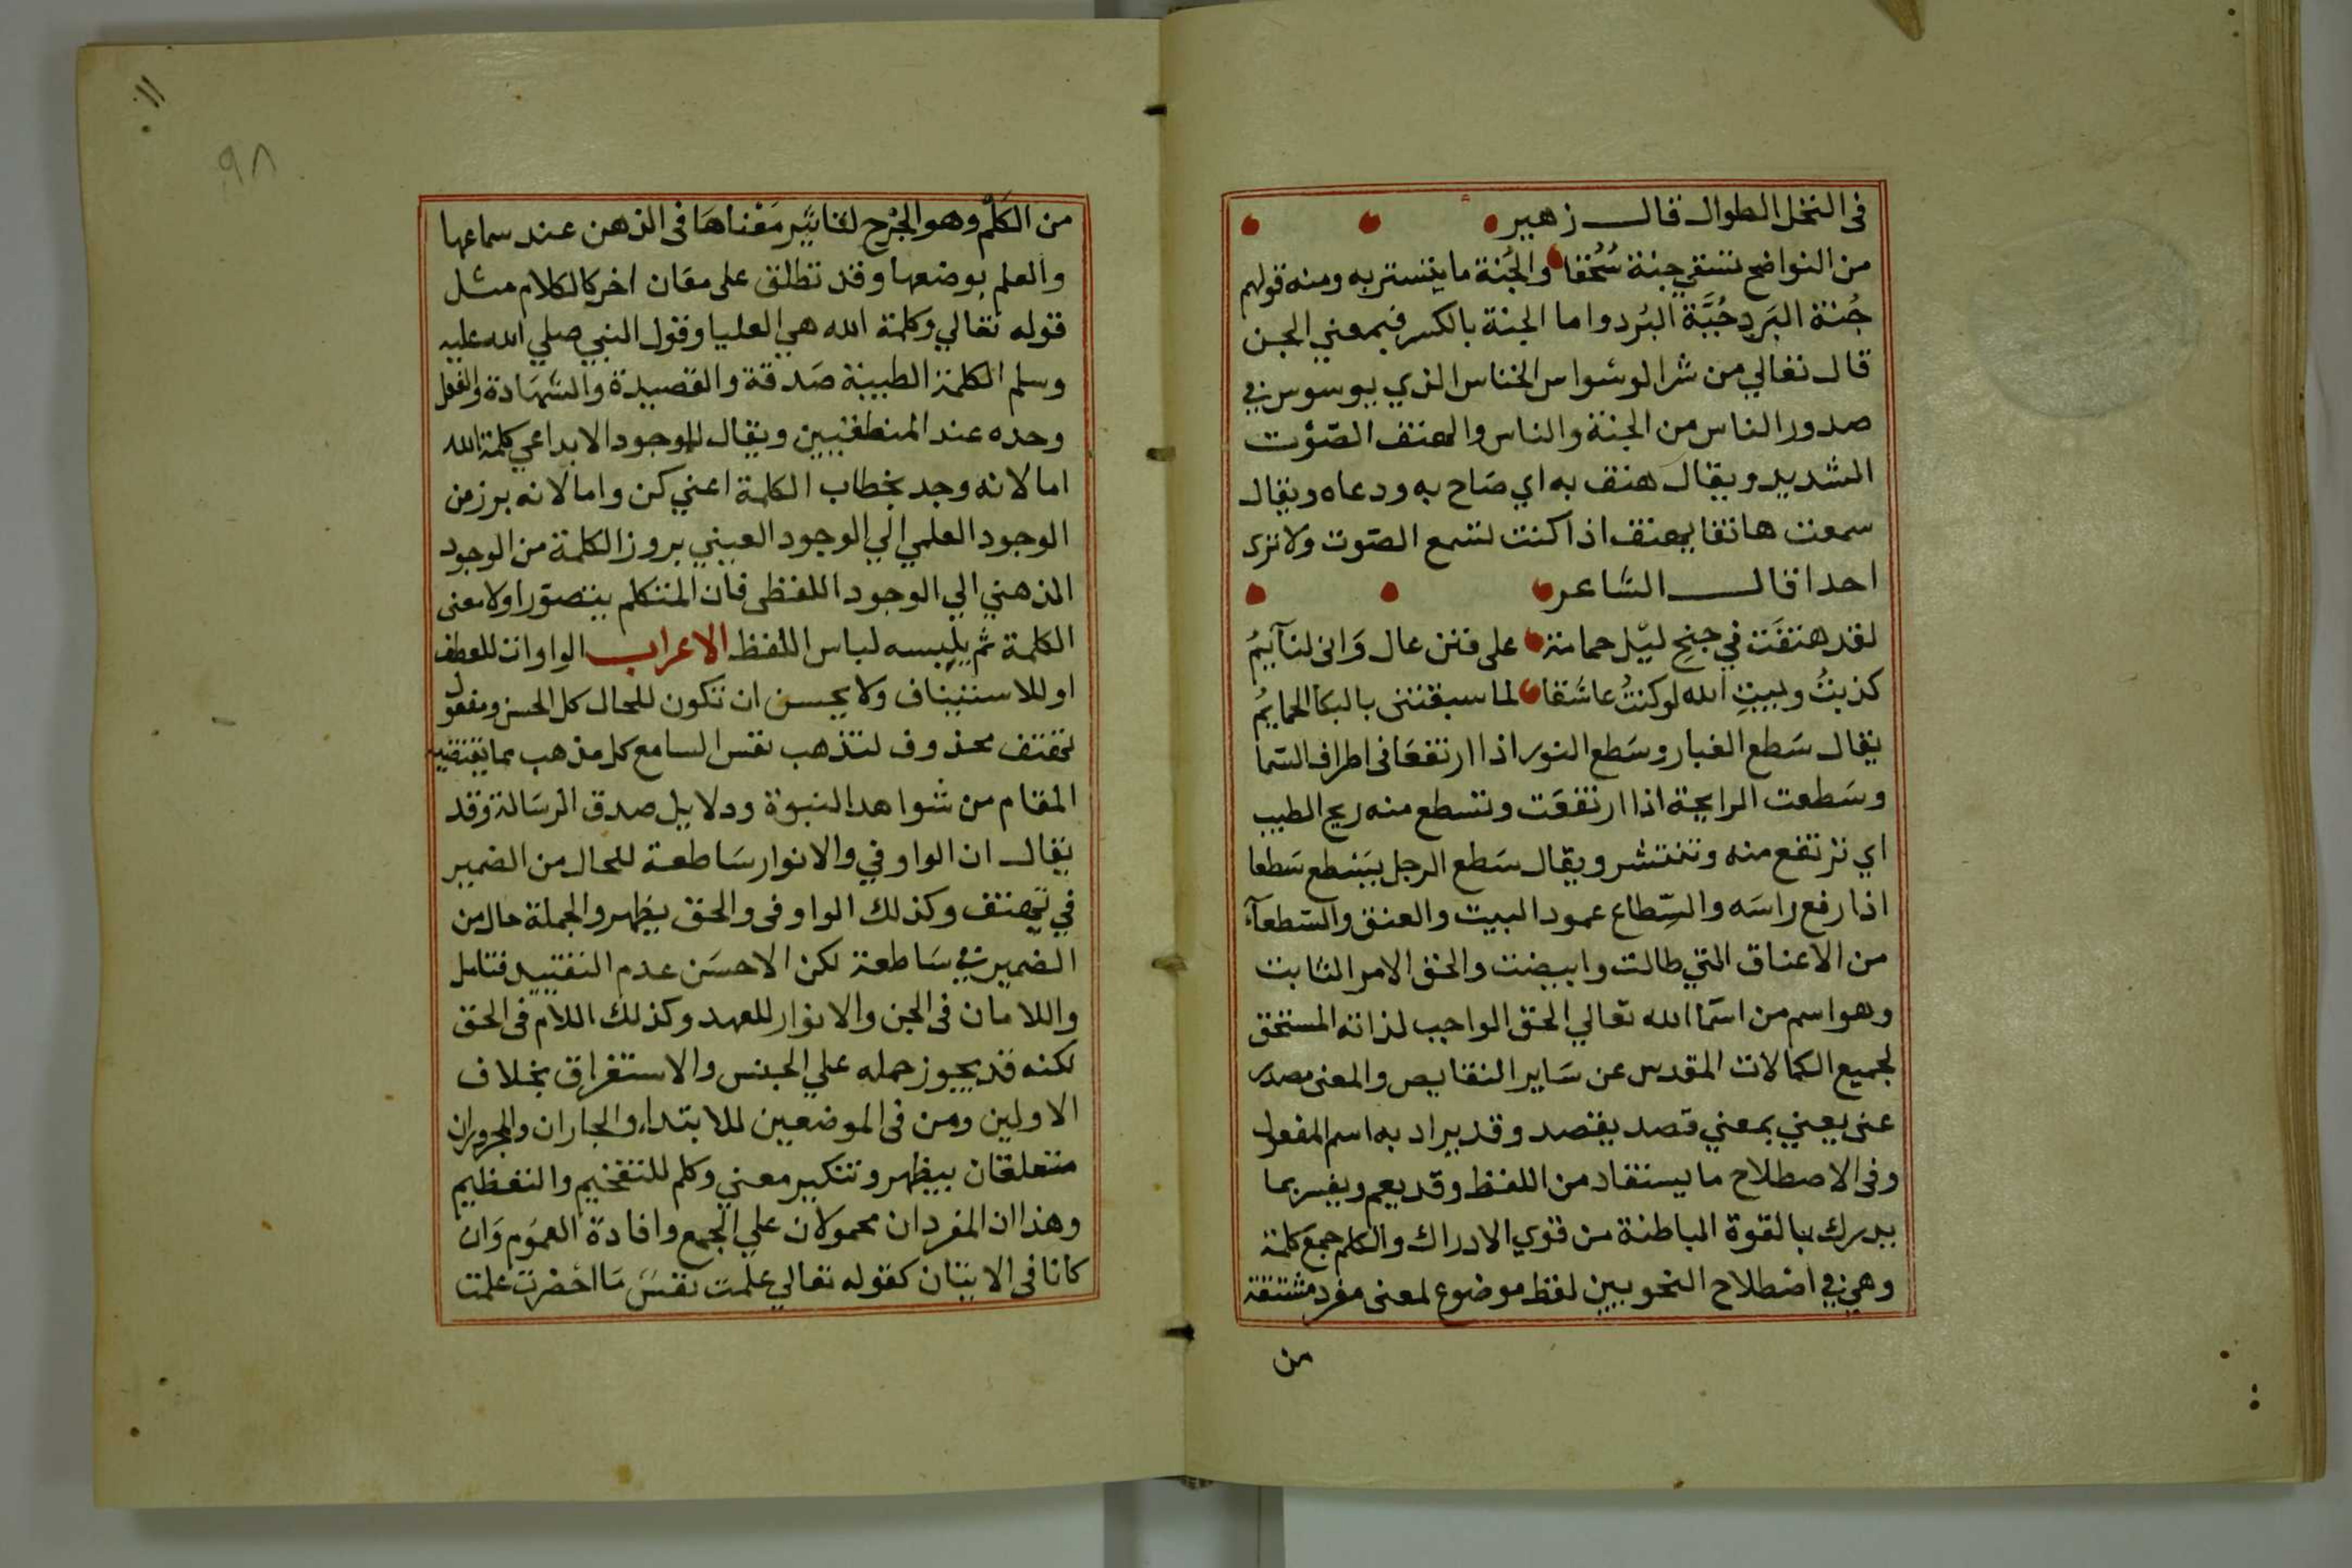 فى النخل الطوال قال زهير
من النواضح تسقي جنة سُحُقا والجُنة ما يتستر به ومنه قولهم
جُنة البَرد جُبَّة البُرد واما الجنة بالكسر فبمعني الجن
قال تعالي من شر الوسواس الخناس الذي يوسوس في
صدور الناس من الجنة والناس والهتف الصّوت
الشديد ويقال هتف به اي صَاح به ودعاه ويقال
سمعت هاتفا يهتف اذا كنت تسمع الصّوت ولا ترى
احدا قال الشاعر
لقد هتفَت في جنحِ ليْل حمامة على فنن عال وَانى لنآيمُ
كذبتُ وبيتِ الله لو كنتُ عاشقا لما سبقتنى بالبكا الحمايمُ
يقال سَطع الغبار وسَطع النور اذا ارتفعَا فى اطراف السّما
وسَطعت الرايحة اذا ارتفعَت وتسطع منه ريح الطيب
اي ترتفع منه وتنتشر ويقال سَطع الرجل يَسْطع سَطعا
اذا رفع راسَه والسِّطاع عمود البيت والعنق والسّطعآء
من الاعناق التي طالت وابيضت والحق الامر الثابت
وهو اسم من اسمَا الله تعالي الحق الواجب لذاته المستحق
لجميع الكمالات المقدس عن سَاير النقايص والمعنى مصدر
عنى يعني بمعني قصد يقصد وقد يراد به اسم المفعول
وفى الاصطلاح ما يستفاد من اللفظ وقد يعم ويفسر بما
يدرك بالقوة الباطنة من قوي الادراك والكلم جمع كلمة
وهي في اصطلاح النحويين لفظ موضوع لمعنى مفرد مشتقة
من
١١٠
٩٨
من الكَلْم وهو الجْرح لتاثير مَعْناهَا فى الذهن عند سماعها
والعلم بوضعها وقد تطلق على معَان اخر كالكلام مثل
قوله تعَالي وكلمة الله هي العليا وقول النبي صلي الله عليه
وسلم الكلمة الطيبة صَدقة والقصيدة والشهَادة والفعل
وحده عند المنطقيين ويقال للموجود الابداعي كلمة الله
اما لانه وجد بخطاب الكلمة اعني كن واما لانه برز من
الوجود العلمي الي الوجود العيني بروز الكلمة من الوجود
الذهني الي الوجود اللفظى فان المتكلم يتصوّر اولا معنى
الكلمة ثم يلبسه لباس اللفظ الاعراب الواوات للعطف
او للاستيناف ولا يحسن ان تكون للحال كل الحسن ومفعول
تهتف محذوف لتذهب نفس السامع كل مذهب مما يقتضيه
المقام من شواهد النبوّة ودلايل صدق الرسَالة وقد
يقال ان الواو في والانوار سَاطعة للحال من الضمير
في تهتف وكذلك الواو فى والحق يظهر والجملة حال من
الضمير في سَاطعة لكن الاحسَن عدم التقييد فتامل
واللامان فى الجن والانوار للعهد وكذلك اللام فى الحق
لكنه قد يجوز حمله علي الجنس والاستغراق بخلاف
الاولين ومن فى الموضعين للابتداء والجاران والمجروران
متعلقان بيظهر وتنكير معني وكلم للتفخيم والتعظيم
وهذا ان المفردان محمولان علي الجمع وافادة العموم وَان
كانا فى الاثبَان كقوله تعالي علمت نفسٌ مَا احْضرت علمت